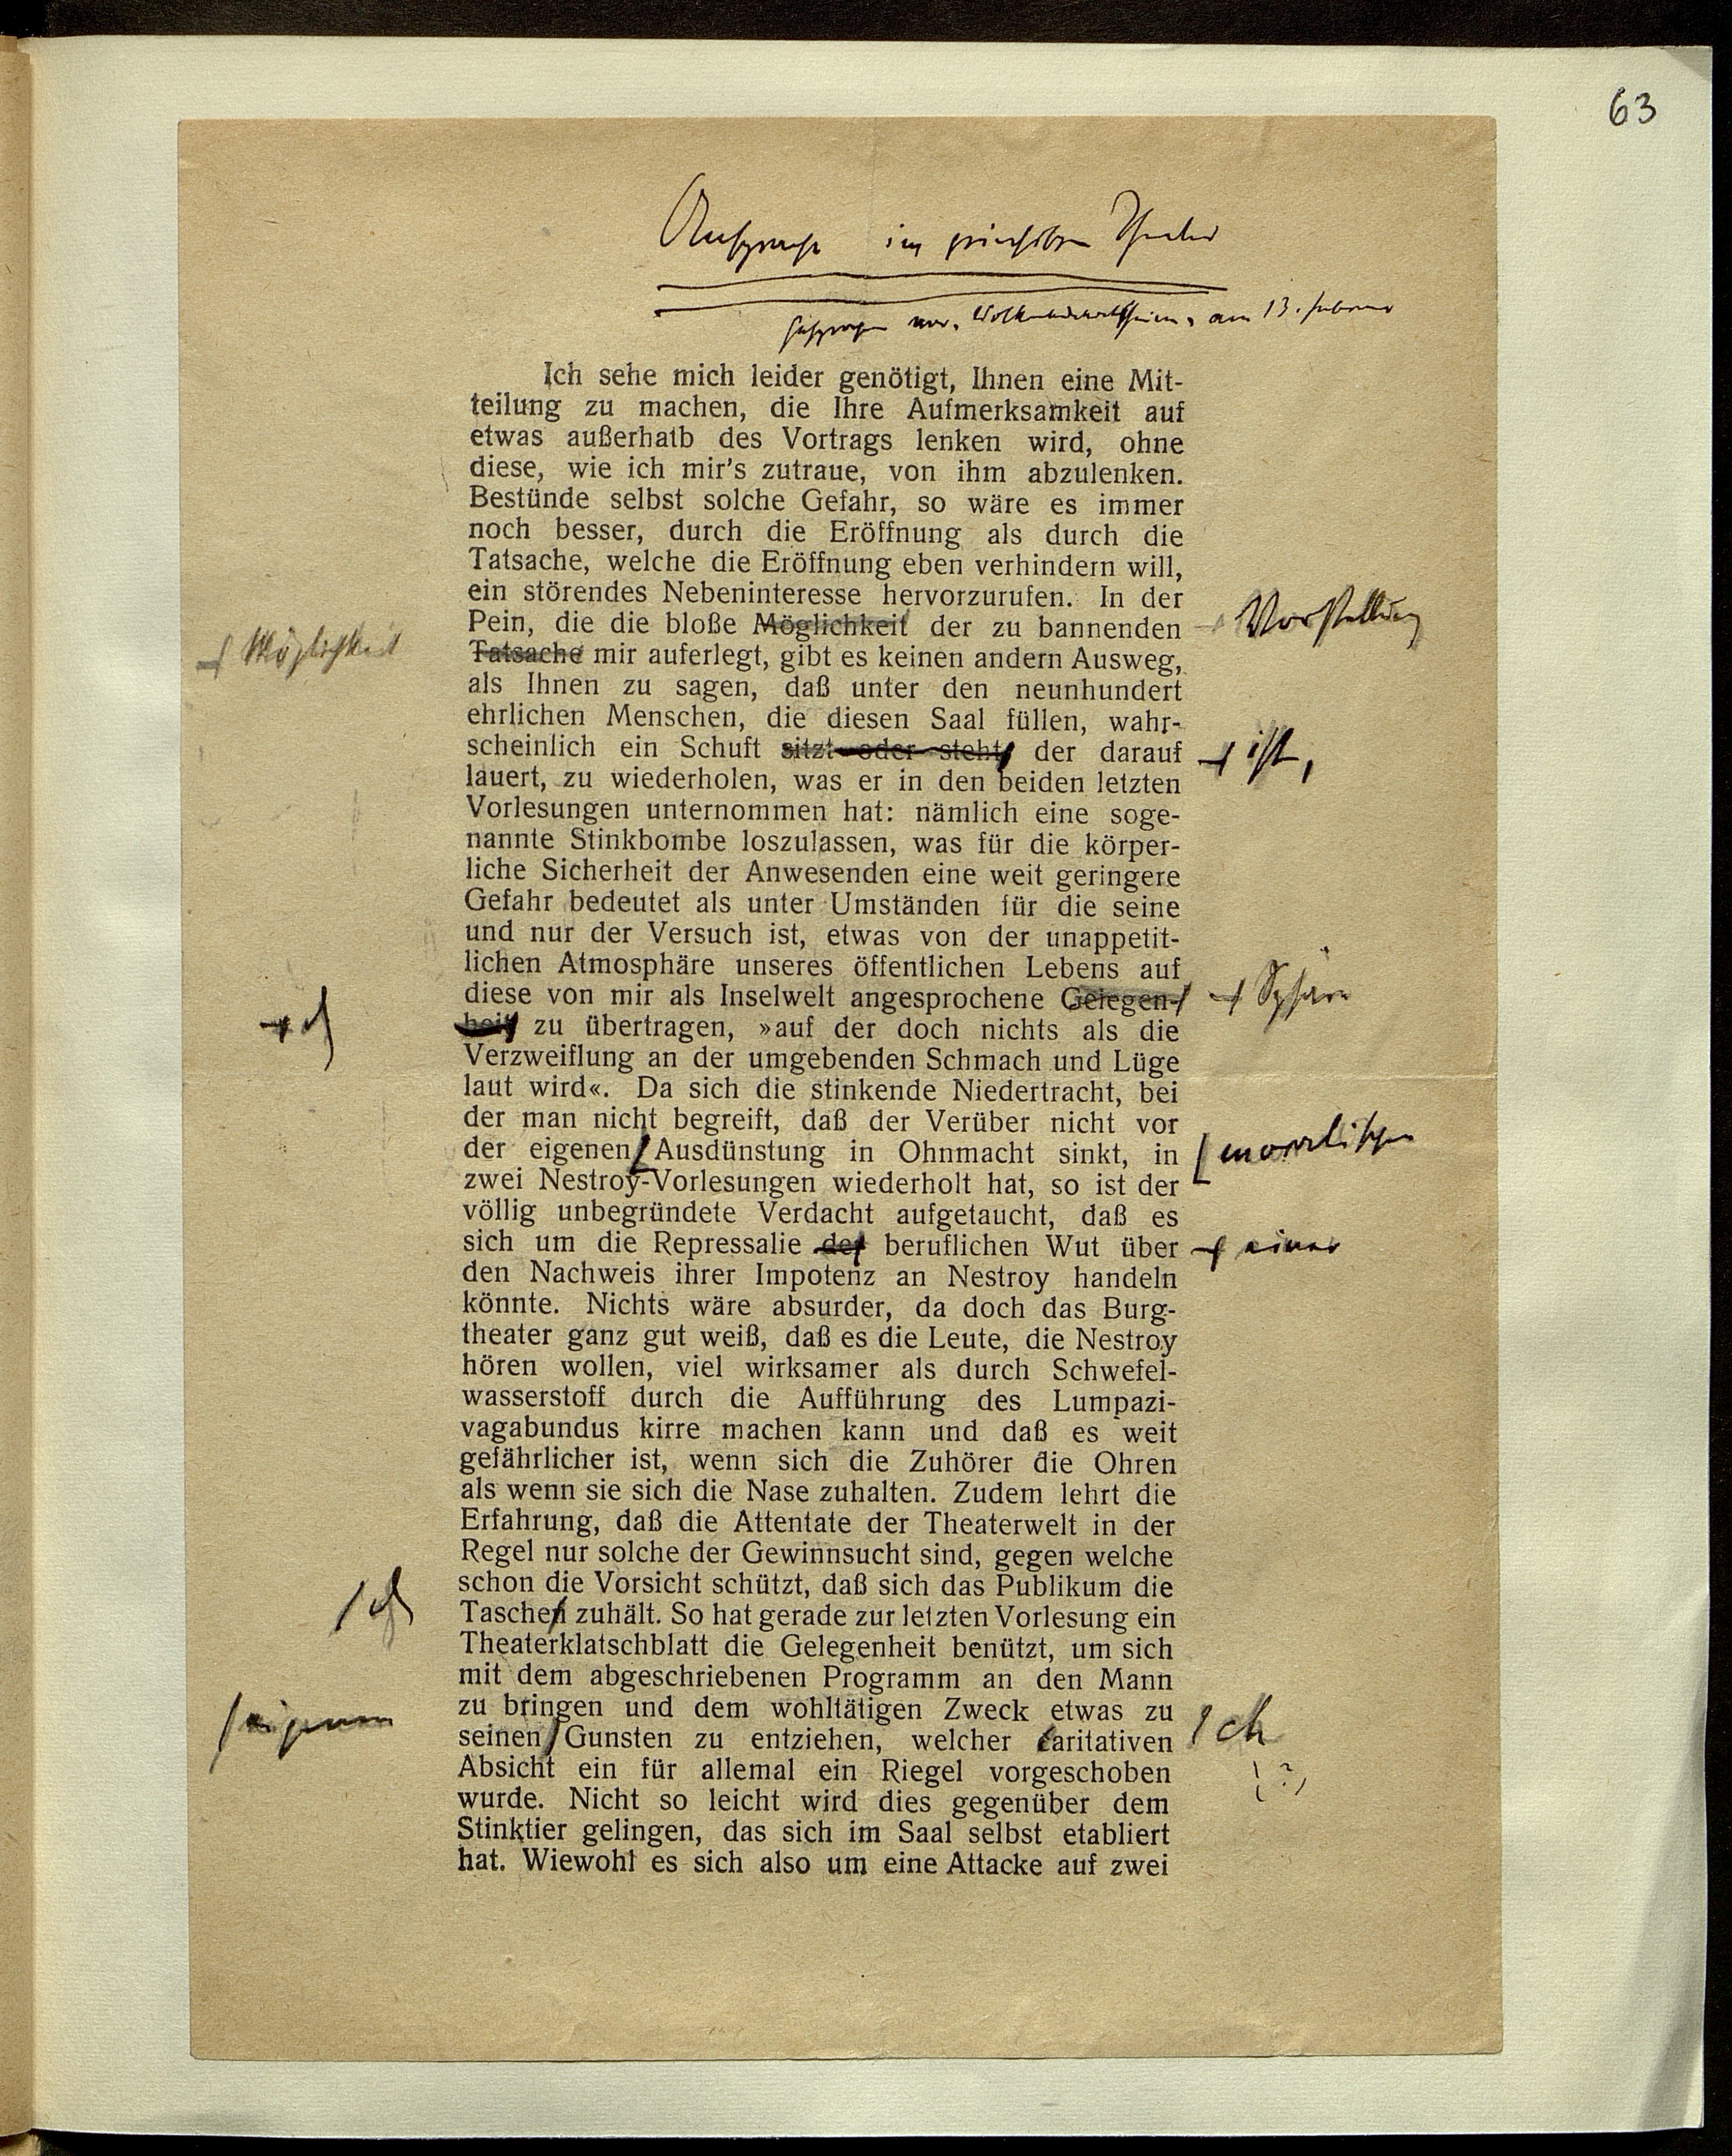 63
Ansprache im
am 13. Februar
Ich sehe mich leider genötigt, Ihnen eine Mit-
teilung zu machen, die Ihre Aufmerksamkeit auf
etwas außerhalb des Vortrags lenken wird, ohne
diese, wie ich mir's zutraue, von ihm abzulenken.
Bestünde selbst solche Gefahr, so wäre es immer
noch besser, durch die Eröffnung als durch die
Tatsache, welche die Eröffnung eben verhindern will,
ein störendes Nebeninteresse hervorzurufen. In der
Pein, die die bloße Möglichkeit der zu bannenden
Vorstellung
Möglichkeit
Tatsache mir auferlegt, gibt es keinen andern Ausweg,
als Ihnen zu sagen, daß unter den neunhundert
ehrlichen Menschen, die diesen Saal füllen, wahr-
scheinlich ein Schuft sitzt oder steht, der darauf
ist,
lauert, zu wiederholen, was er in den beiden letzten
Vorlesungen unternommen hat: nämlich eine soge-
nannte Stinkbombe loszulassen, was für die körper-
liche Sicherheit der Anwesenden eine weit geringere
Gefahr bedeutet als unter Umständen für die seine
und nur der Versuch ist, etwas von der unappetit-
lichen Atmosphäre unseres öffentlichen Lebens auf
diese von mir als Inselwelt angesprochene Gelegen-
Sphäre
heit zu übertragen, »auf der doch nichts als die
Verzweiflung an der umgebenden Schmach und Lüge
laut wird«. Da sich die stinkende Niedertracht, bei
der man nicht begreift, daß der Verüber nicht vor
der eigenen Ausdünstung in Ohnmacht sinkt, in
moralischen
zwei Nestroy-Vorlesungen wiederholt hat, so ist der
völlig unbegründete Verdacht aufgetaucht, daß es
sich um die Repressalie der beruflichen Wut über
einer
den Nachweis ihrer Impotenz an Nestroy handeln
könnte. Nichts wäre absurder, da doch das Burg-
theater ganz gut weiß, daß es die Leute, die Nestroy
hören wollen, viel wirksamer als durch Schwefel-
wasserstoff durch die Aufführung des Lumpazi-
vagabundus kirre machen kann und daß es weit
gefährlicher ist, wenn sich die Zuhörer die Ohren
als wenn sie sich die Nase zuhalten. Zudem lehrt die
Erfahrung, daß die Attentate der Theaterwelt in der
Regel nur solche der Gewinnsucht sind, gegen welche
schon die Vorsicht schützt, daß sich das Publikum die
Taschen zuhält. So hat gerade zur letzten Vorlesung ein
Theaterklatschblatt die Gelegenheit benützt, um sich
mit dem abgeschriebenen Programm an den Mann
zu bringen und dem wohltätigen Zweck etwas zu
eigenen
seinen Gunsten zu entziehen, welcher caritativen
ch
(?)
Absicht ein für allemal ein Riegel vorgeschoben
wurde. Nicht so leicht wird dies gegenüber dem
Stinktier gelingen, das sich im Saal selbst etabliert
hat. Wiewohl es sich also um eine Attacke auf zwei